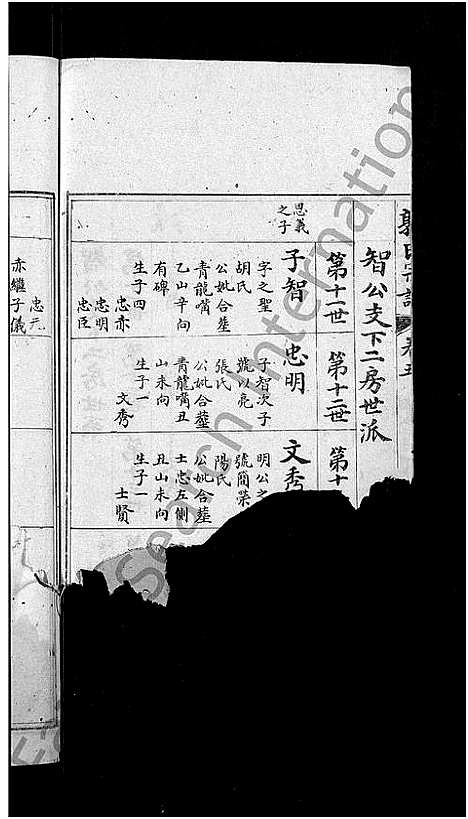 郭氏宗譜 卷五
智公支下二房世派
第十一世
第十二世
第十
思義之子
子智
字之聖
胡氏
公妣合葬
青龍嘴
乙山辛向
有碑
生子四
忠赤
忠明
忠臣
忠元
忠明
子智次子
號以亮
張氏
公妣合葬
青龍嘴丑
山未向
生子一
文秀
文秀
明公之
號簡荣
陽氏
公妣合葬
士忠左側
丑山未向
生子一
士賢
赤繼子儀
Search International